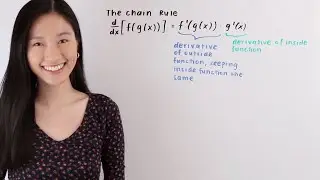 The Chain Rule
d/dx [f(g(x))] = f'(g(x)) g'(x)
derivative of outside function, keeping inside function the same
derivative of inside function